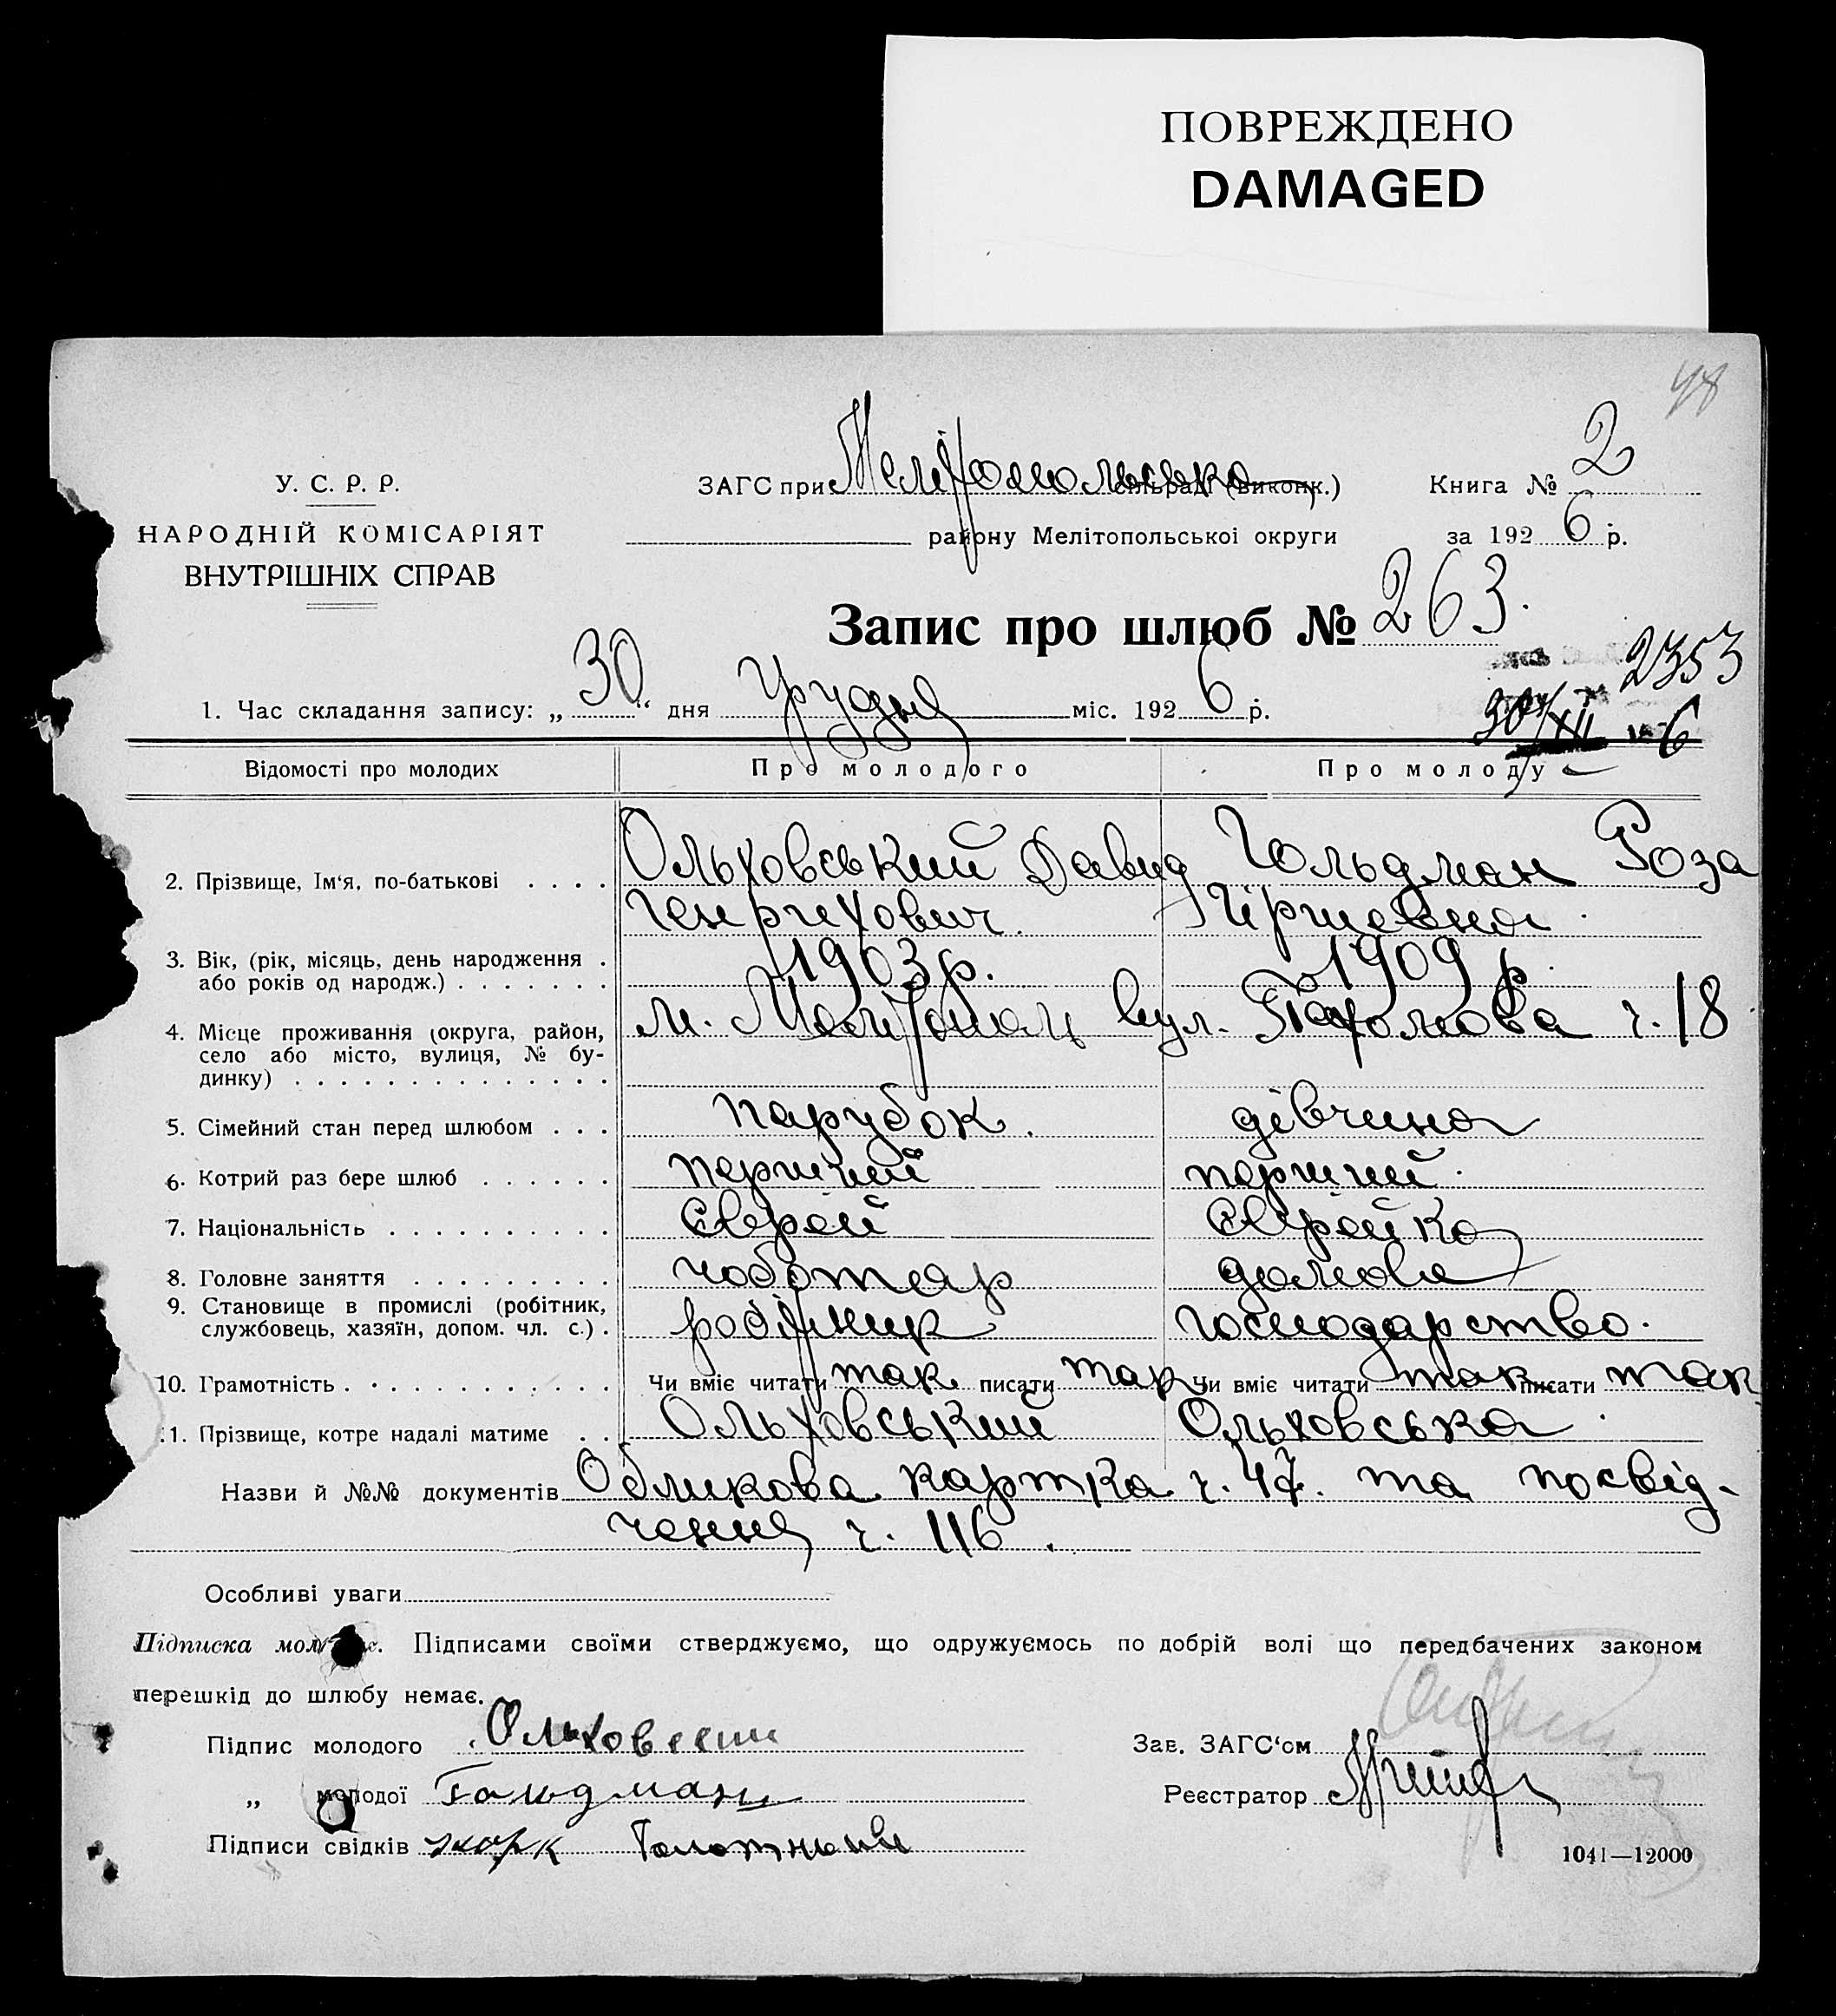 ПОВРЕЖДЕНО
DAMAGED
48
У. С. Р. Р.
НАРОДНІЙ КОМІСАРІЯТ
ВНУТРІШНІХ СПРАВ
ЗАГС при Мелітопольсько сільраді (виконк.)
району Мелітопольської округи
Книга № 2
за 1926 р.
Запис про шлюб № 263.
2353
30/XII 6
1. Час складання запису: „30“ дня Грудня міс. 1926 р.
Відомості про молодих Про молодого Про молоду
2. Прізвище, Ім‘я, по-батькові . . . . Ольховський Давид Гольдман Роза
Генрихович. Гіршевна.
3. Вік, (рік, місяць, день народження . 1903 р. 1909 р.
або років од народж.) . . . . . . .
4. Місце проживання (округа, район, м. Мелітополь вул. Пахомова ч. 18
село або місто, вулиця, № бу-
динку) . . . . . . . . . . . . . .
5. Сімейний стан перед шлюбом . . . парубок. дівчина
6. Котрий раз бере шлюб . . . . . . перший перший.
7. Національність . . . . . . . . . . Єврей Єврейка
8. Головне заняття . . . . . . . . . чоботар домове
9. Становище в промислі (робітник, робітник господарство.
службовець, хазяїн, допом. чл. с.) .
10. Грамотність . . . . . . . . . . . . Чи вміє читати так писати так Чи вміє читати так писати так
1. Прізвище, котре надалі матиме . . Ольховський Ольховська.
Назви й №№ документів Обликова картка ч. 47. та посвід-
чення ч. 116.
Особливі уваги
Підписка мол Підписами своїми стверджуємо, що одружуємось по добрій волі що передбачених законом
перешкід до шлюбу немає.
Підпис молодого Ольховский Зав. ЗАГС‘ом
„ молодої Гольдман Реєстратор
Підписи свідків
1041—12000